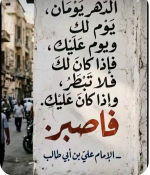 الدهر يَومَان،
يَوم لكَ
ويوم عَلَيْك،
فإذا كانَ لكَ
فَلا تَبْطَرْ،
وإذا كانَ عَلَيْكَ،
فاصبر.
ـ الإمام علي بن أبي طالب